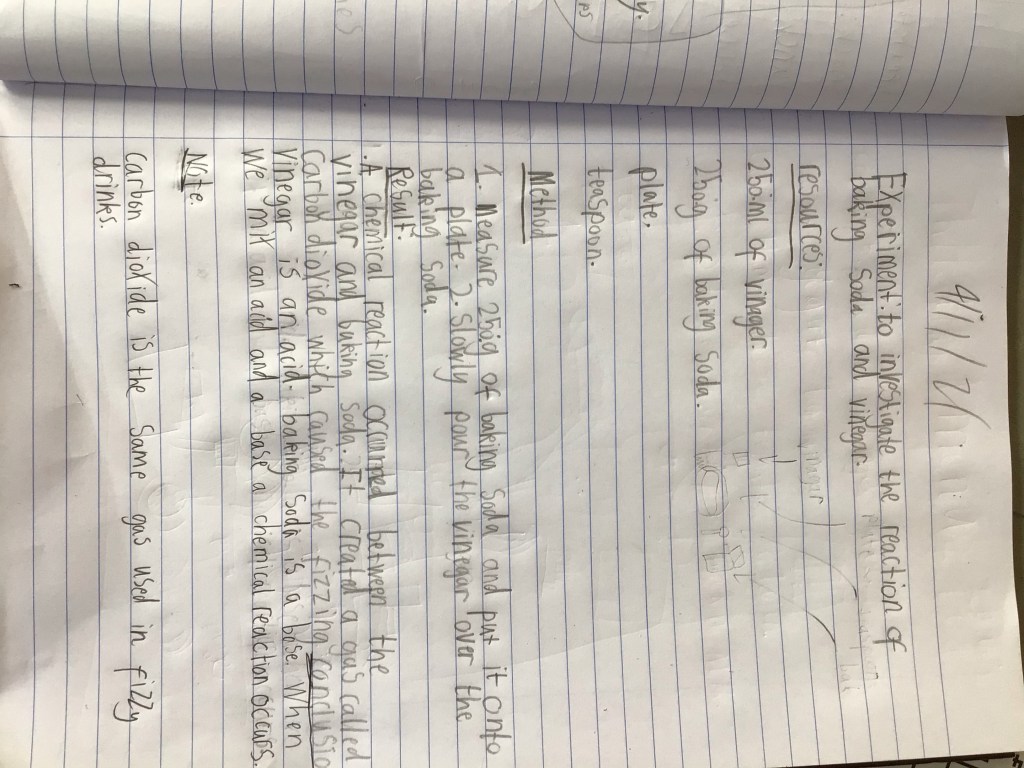 4/11/21
Experiment: to investigate the reaction of
baking Soda and vinegar
resources:
25ml of vinager.
25ig of baking Soda.
plate.
teaspoon.
Method
1. Measure 25ig of baking Soda and put it onto
a plate. 2. Slowly pour the vinegar over the
baking Soda.
Result:
1. A chemical reaction occurred between the
vinegar and baking Soda. It created a gas called
Carbon dioxide which caused the fizzing conclusio
Vinegar is an acid. baking soda is a base. When
We mix an acid and a base a chemical reaction occurs.
Note.
Carbon dioxide is the Same gas used in fizzy
drinks.